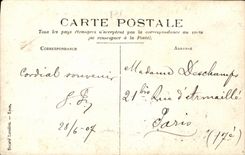 CARTE POSTALE
Tous les pays étrangers n'acceptent pas la correspondance au recto
(se renseigner à la Poste).
CORRESPONDANCE
ADRESSE
Cordial souvenir
28/6-07
Madame Deschamps
21 bis Rue d'Armaillé
Paris
(17e)